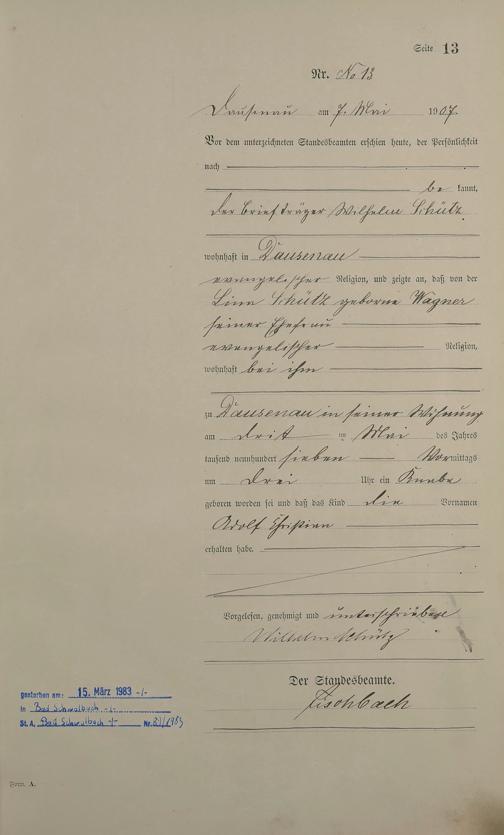 Seite 13
Nr. No 13
Dausenau am 7. Mai 1907.
Vor dem unterzeichneten Standesbeamten erschien heute, der Persönlichkeit
nach
be kannt,
der Briefträger Wilhelm Schütz
wohnhaft in Dausenau
evangelischer Religion, und zeigte an, daß von der
Lina Schütz geborne Wagner
seiner Ehefrau
evangelischer Religion,
wohnhaft bei ihm
zu Dausenau in seiner Wohnung
am drit im Mai des Jahres
tausend neunhundert sieben Vormittags
um drei Uhr ein Knabe
geboren worden sei und daß das Kind die Vornamen
Adolf Christian
erhalten habe.
Vorgelesen, genehmigt und unterschrieben
Wilhelm Schütz
Der Standesbeamte.
Fischbach
gestorben am: 15. März 1983 -/-
in Bad Schwalbach -/-
St. A. Bad Schwalbach Nr. /1983
Form. A.